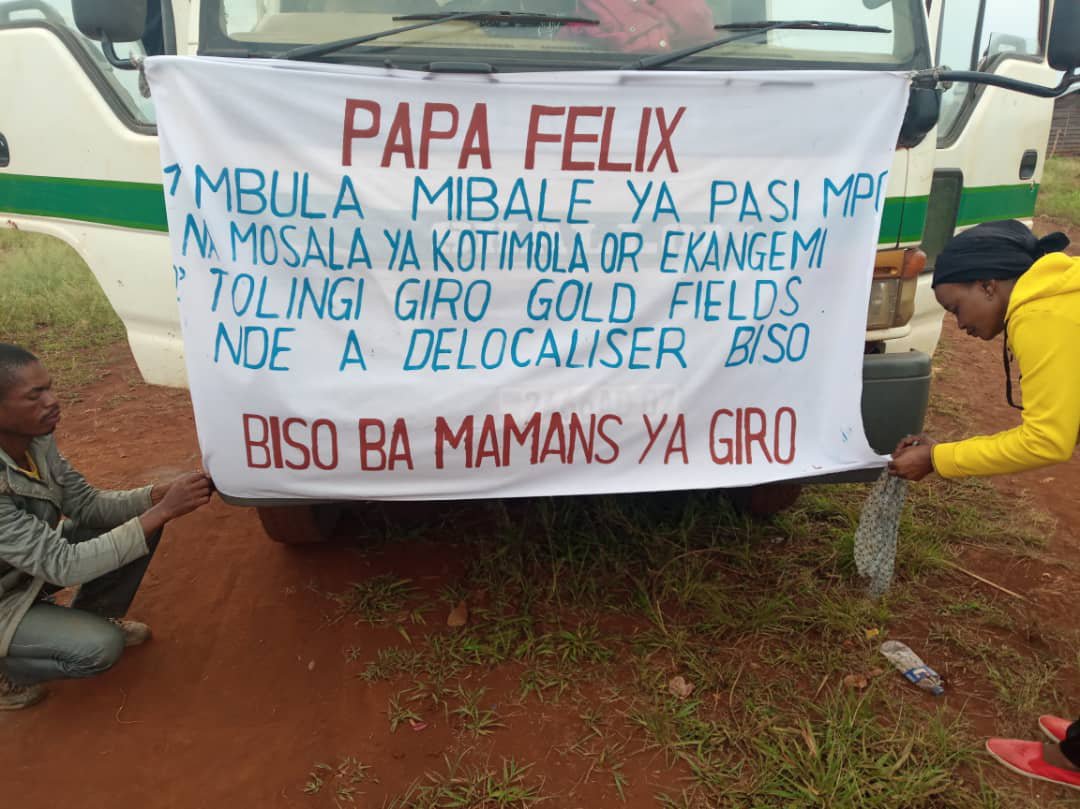 PAPA FELIX
MBULA MIBALE YA PASI
NA MOSALA YA KOTIMOLA OR EKANGEMI
TOLINGI GIRO GOLD FIELDS
NDE A DELOCALISER BISO
BISO BA MAMANS YA GIRO